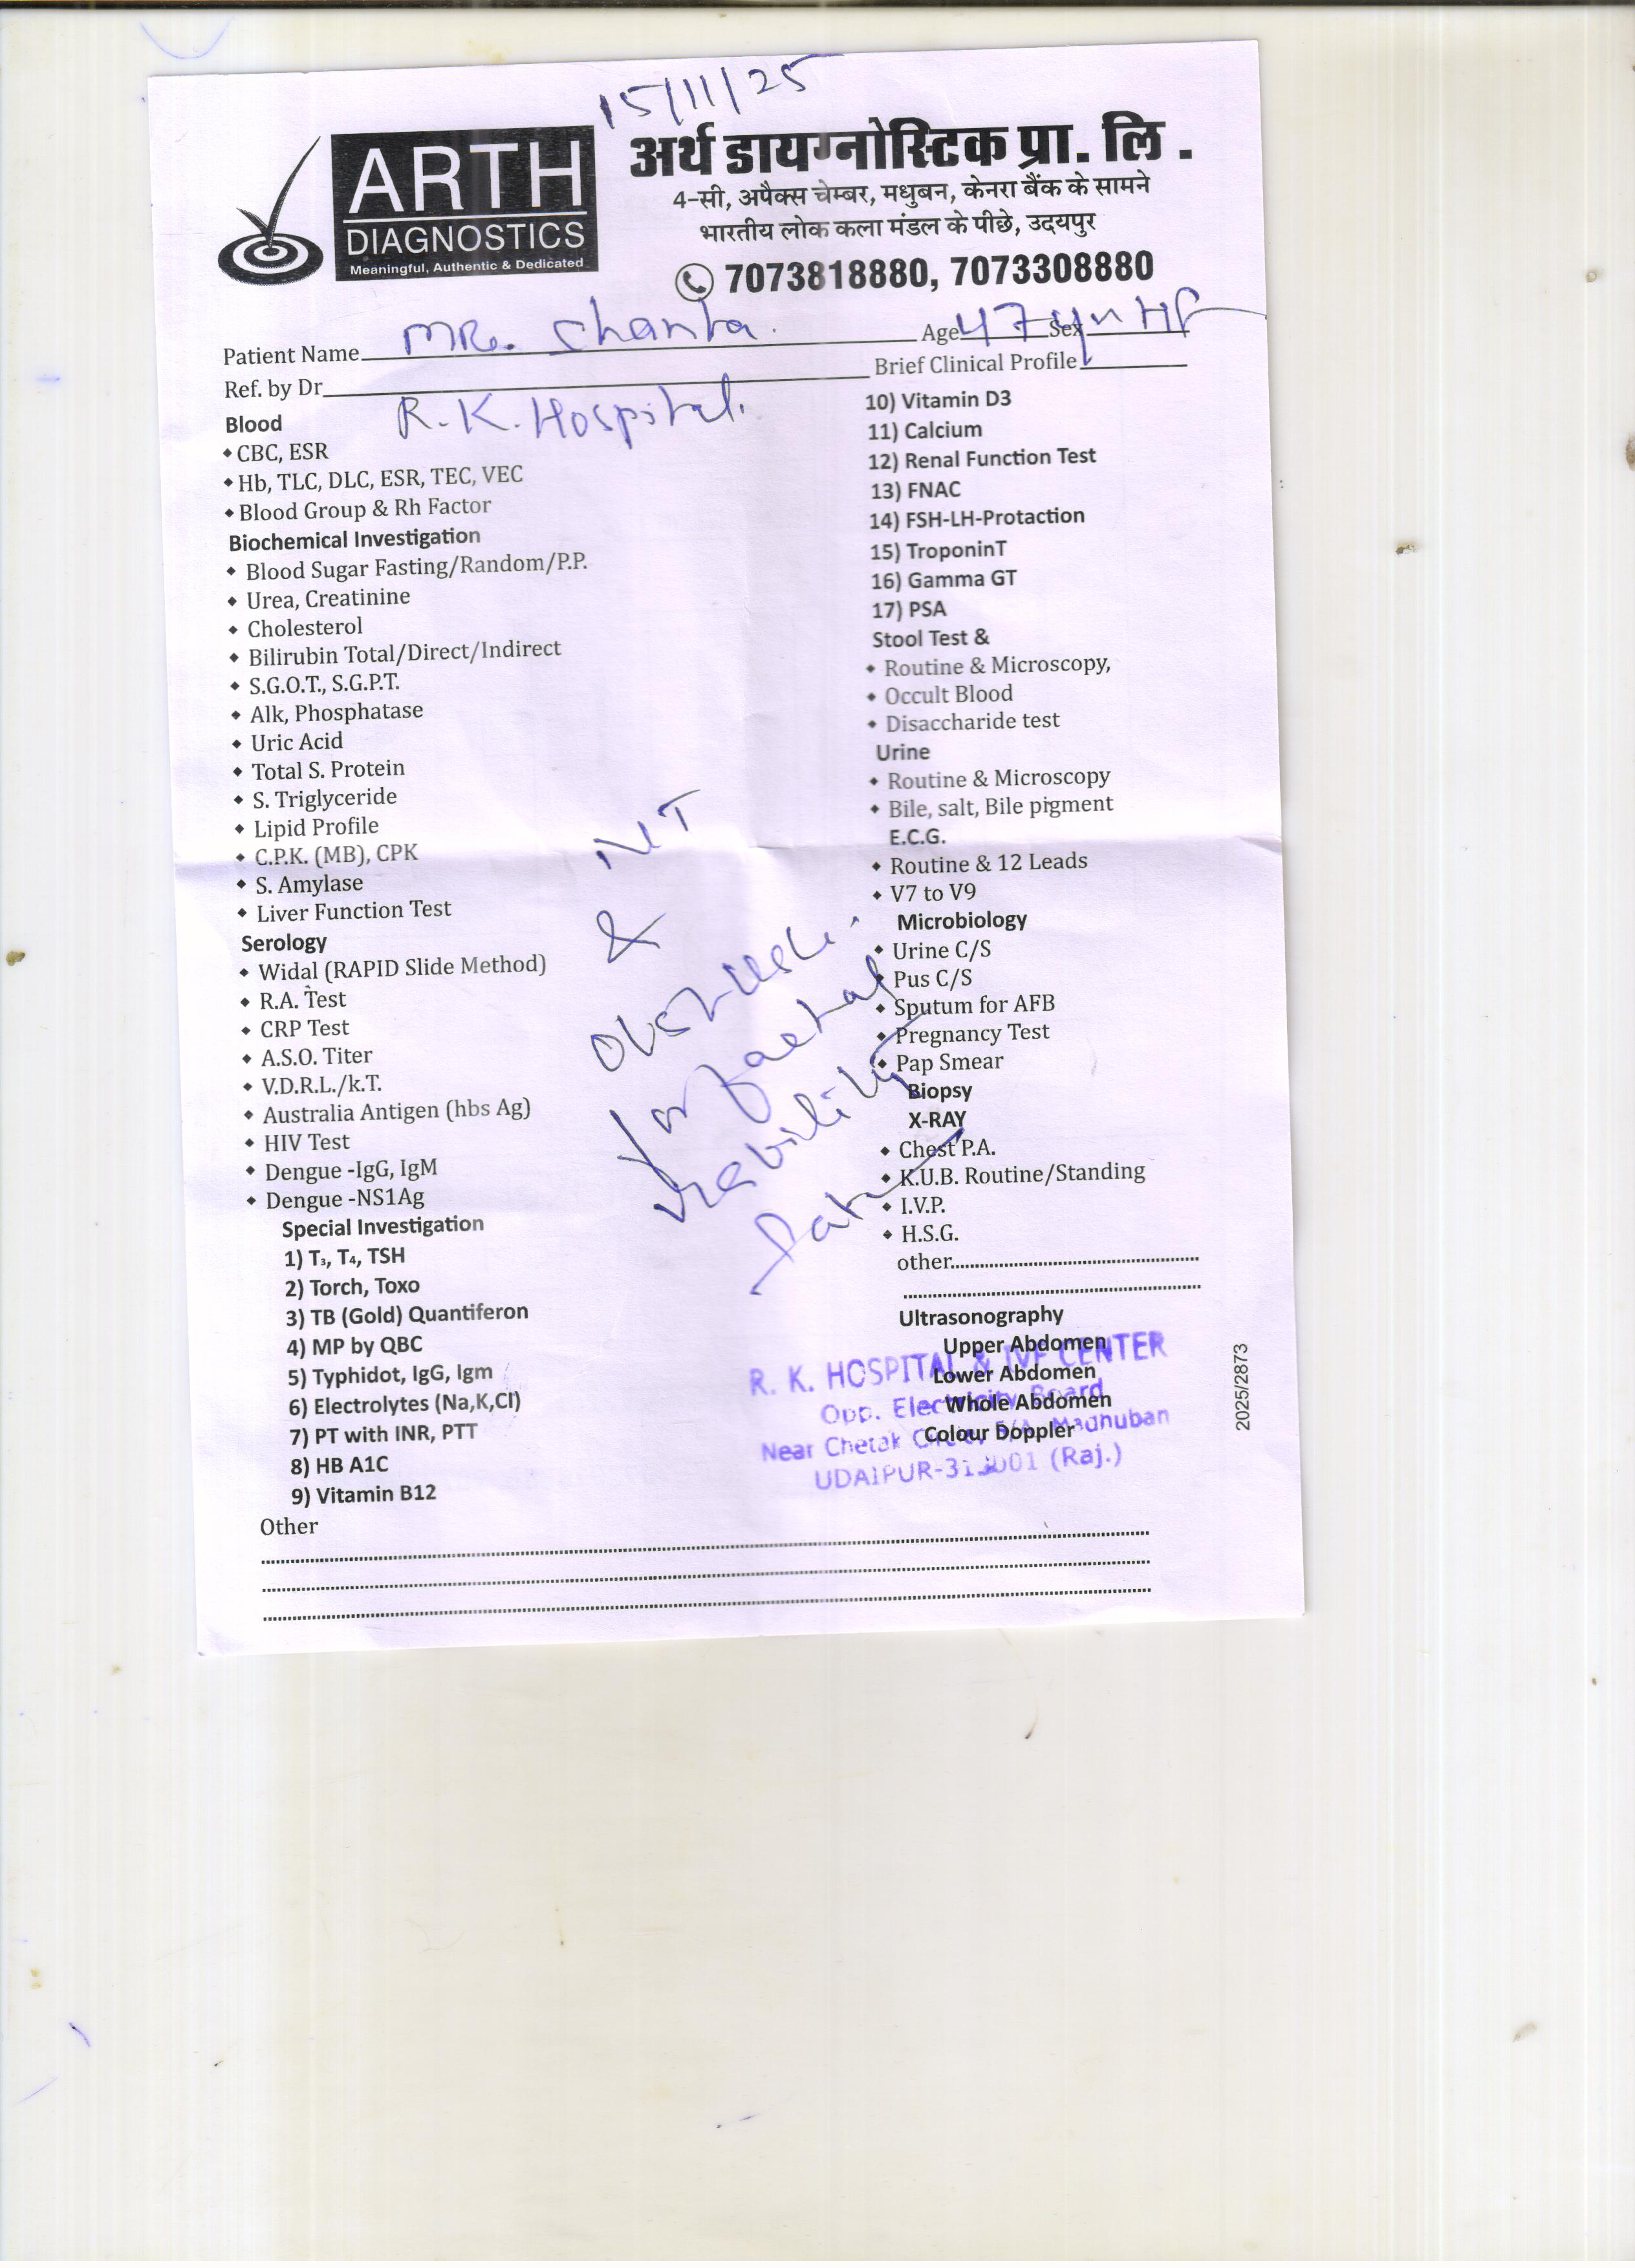 15/11/25
ARTH
DIAGNOSTICS
Meaningful, Authentic & Dedicated
अर्थ डायग्नोस्टिक प्रा. लि .
4-सी, अपैक्स चेम्बर, मधुबन, केनरा बैंक के सामने
भारतीय लोक कला मंडल के पीछे, उदयपुर
7073818880, 7073308880
Patient Name Age 47 Sex
Ref. by Dr Brief Clinical Profile
R.K. Hospital.
Blood
CBC, ESR
Hb, TLC, DLC, ESR, TEC, VEC
Blood Group & Rh Factor
Biochemical Investigation
Blood Sugar Fasting/Random/P.P.
Urea, Creatinine
Cholesterol
Bilirubin Total/Direct/Indirect
S.G.O.T., S.G.P.T.
Alk, Phosphatase
Uric Acid
Total S. Protein
S. Triglyceride
Lipid Profile
C.P.K. (MB), CPK
S. Amylase
Liver Function Test
Serology
Widal (RAPID Slide Method)
R.A. Test
CRP Test
A.S.O. Titer
V.D.R.L./k.T.
Australia Antigen (hbs Ag)
HIV Test
Dengue -IgG, IgM
Dengue -NS1Ag
Special Investigation
1) T₃, T₄, TSH
2) Torch, Toxo
3) TB (Gold) Quantiferon
4) MP by QBC
5) Typhidot, IgG, Igm
6) Electrolytes (Na,K,Cl)
7) PT with INR, PTT
8) HB A1C
9) Vitamin B12
10) Vitamin D3
11) Calcium
12) Renal Function Test
13) FNAC
14) FSH-LH-Protaction
15) TroponinT
16) Gamma GT
17) PSA
Stool Test &
Routine & Microscopy,
Occult Blood
Disaccharide test
Urine
Routine & Microscopy
Bile, salt, Bile pigment
E.C.G.
Routine & 12 Leads
V7 to V9
Microbiology
Urine C/S
Pus C/S
Sputum for AFB
Pregnancy Test
Pap Smear
Biopsy
X-RAY
Chest P.A.
K.U.B. Routine/Standing
I.V.P.
H.S.G.
other
Ultrasonography
Upper Abdomen
Lower Abdomen
Whole Abdomen
Colour Doppler
NT
&
for faetal
viability
R. K. HOSPITAL & IVF CENTER
Opp. Electricity Board
Near Chetak Madhuban
UDAIPUR-313001 (Raj.)
2025/2873
Other